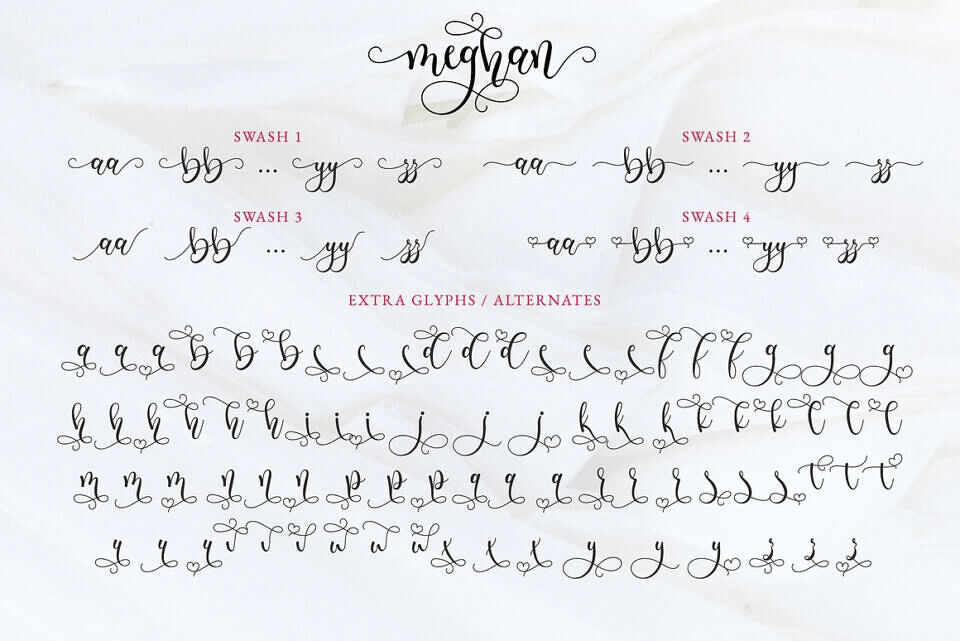 meghan
SWASH 1
aa bb ... yy zz
SWASH 2
aa bb ... yy zz
SWASH 3
aa bb ... yy zz
SWASH 4
aa bb ... yy zz
EXTRA GLYPHS / ALTERNATES
a a a b b b c c c d d d e e e f f f g g g
h h h h h h i i i j j j k k k k k k l l l
m m m n n n p p p q q q r r r s s s t t t
u u u v v v w w w x x x y y y z z z